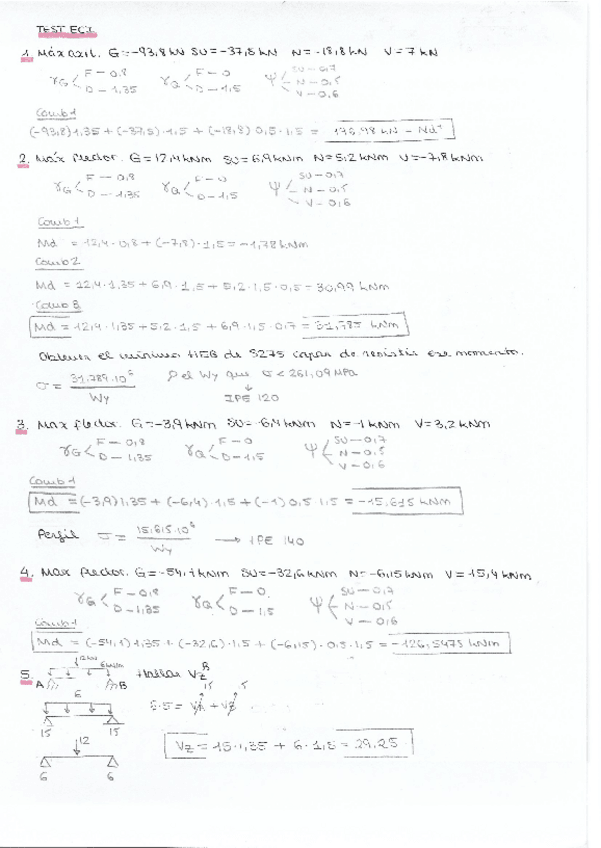 TEST EC1
1. Máx axil. G=-93,8 kN SU=-37,5 kN N=-18,8 kN V=7 kN
γG F-0,8 D-1,35 γQ F-0 D-1,5 ψ SU-0,7 N-0,5 V-0,6
Comb 1
(-93,8)1,35 + (-37,5)·1,5 + (-18,8)0,5·1,5 = 196,98 kN = Nd
2. Máx flector. G=12,4 kNm SU=6,9 kNm N=5,2 kNm V=-7,8 kNm
γG F-0,8 D-1,35 γQ F-0 D-1,5 ψ SU-0,7 N-0,5 V-0,6
Comb 1
Md = 12,4·0,8 + (-7,8)·1,5 = -1,78 kNm
Comb 2
Md = 12,4·1,35 + 6,9·1,5 + 5,2·1,5·0,5 = 30,99 kNm
Comb 3
Md = 12,4·1,35 + 5,2·1,5 + 6,9·1,5·0,7 = 31,785 kNm
Obtener el mínimo de S275 capaz de resistir ese momento.
σ = 31,789·10⁶ / Wy el Wy que σ < 261,09 MPa
↓
IPE 120
3. Max flector. G=-3,9 kNm SU=-6,4 kNm N=-1 kNm V=3,2 kNm
γG F-0,8 D-1,35 γQ F-0 D-1,5 ψ SU-0,7 N-0,5 V-0,6
Comb 1
Md = (-3,9)1,35 + (-6,4)·1,5 + (-1)0,5·1,5 = -15,615 kNm
Perfil σ = 15,615·10⁶ / Wy → IPE 140
4. Max flector. G=-54,1 kNm SU=-32,6 kNm N=-6,15 kNm V=15,4 kNm
γG F-0,8 D-1,35 γQ F-0. D-1,5 ψ SU-0,7 N-0,5 V-0,6
Comb 1
Md = (-54,1)1,35 + (-32,6)·1,5 + (-6,15)·0,5·1,5 = -126,5475 kNm
5. 12kN 6kN/m A B Hallar VzB
6
15 15
6·5 =
12
6 6
Vz = 15·1,35 + 6·1,5 = 29,25